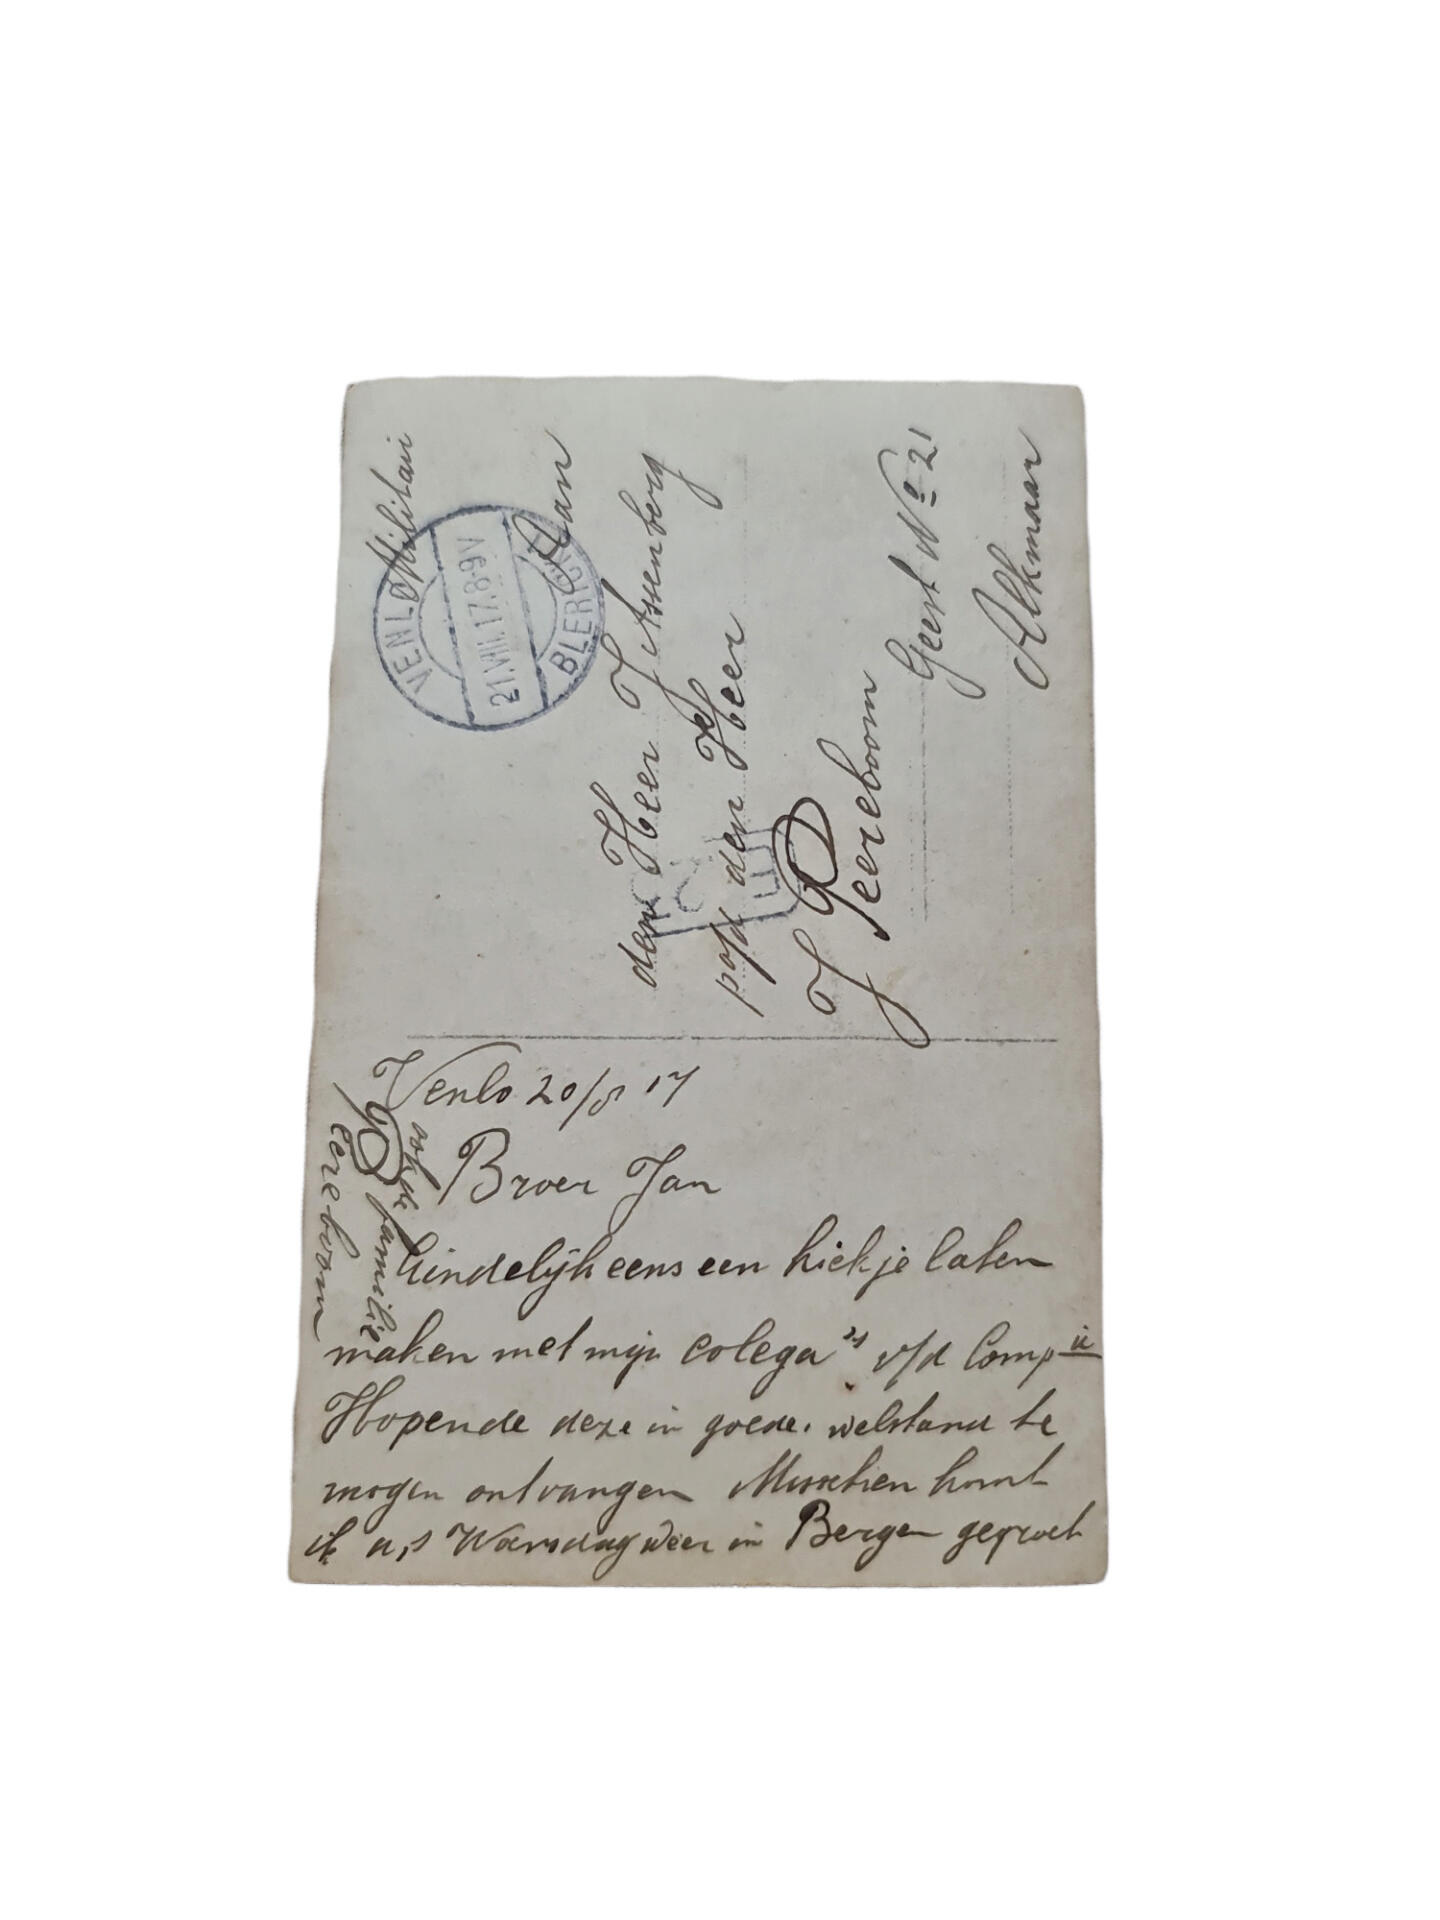 Militair
VENLO
21.VIII.17.8-9V
BLERICK
Aan
den Heer J Assenberg
p/a den Heer
J Peereboom
Geest No 21
Alkmaar
Venlo 20/8 17
Broer Jan
Eindelijk eens een kiekje laten
maken met mijn colega's v/d Compie
Hopende deze in goede welstand te
mogen ontvangen Misschien komt
ik a,s Woensdag weer in Bergen gegroet
ook de
familie
Peereboom